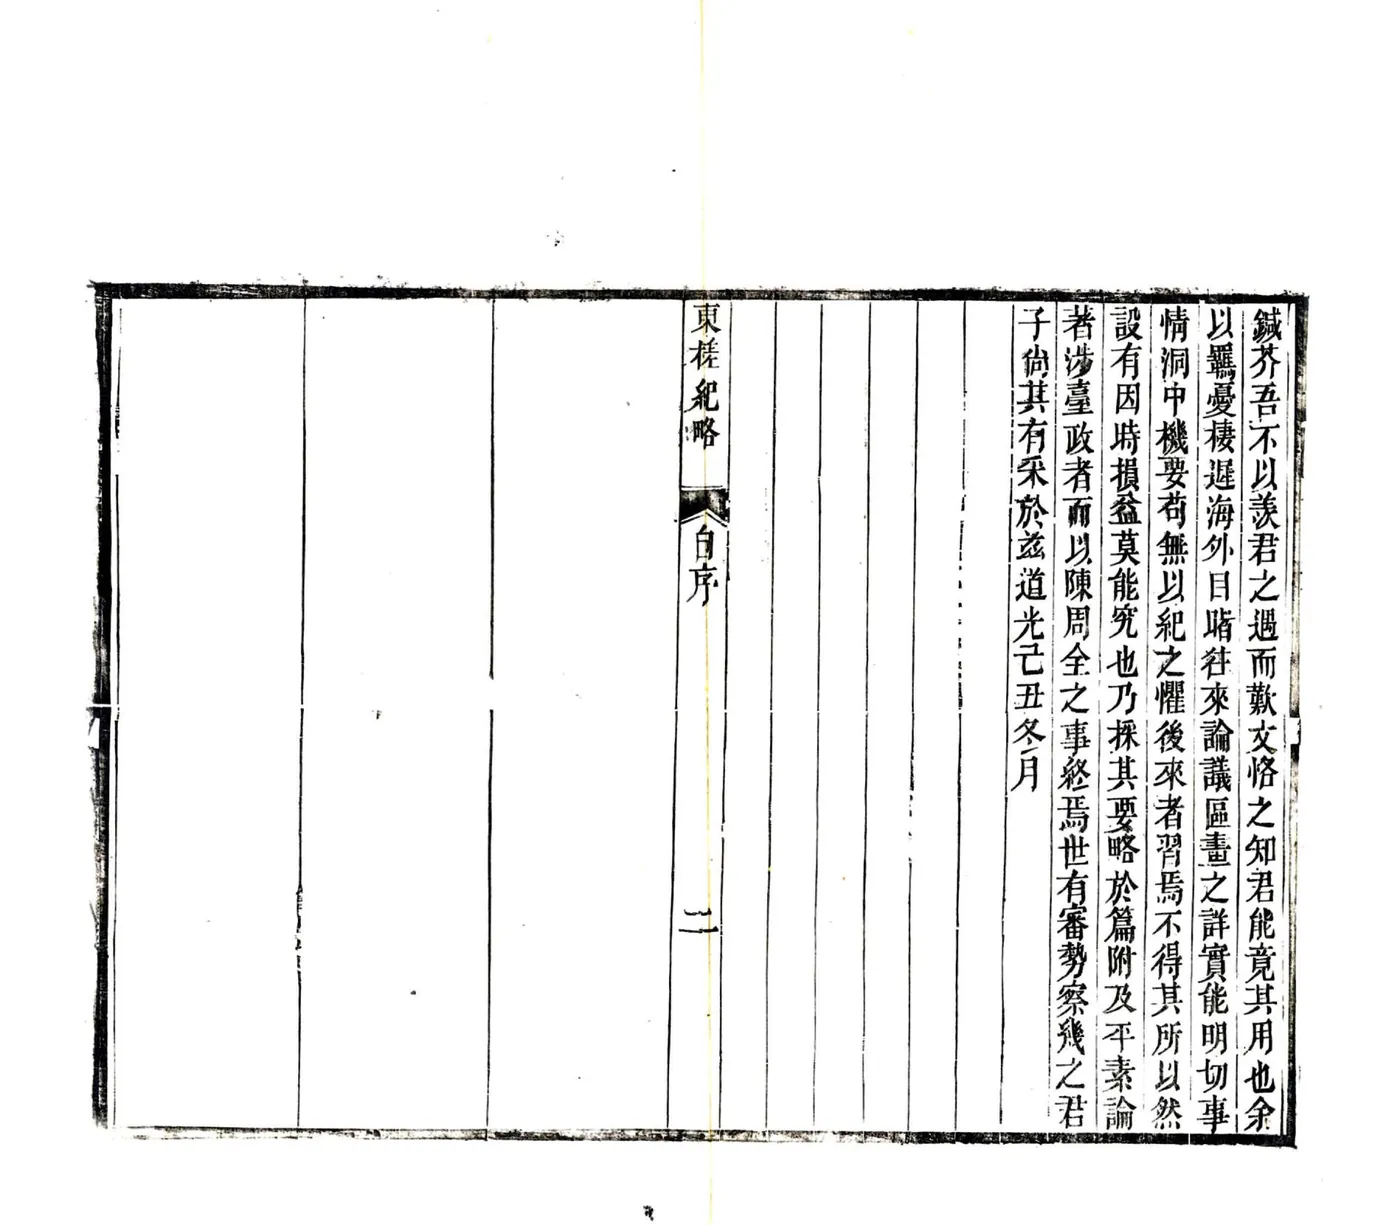 鍼芥吾不以羨君之遇而歎文恪之知君能竟其用也余
以羈憂棲遲海外目睹往來論議區畫之詳實能明切事
情洞中機要苟無以紀之懼後來者習焉不得其所以然
設有因時損益莫能究也乃採其要略於篇附及平素論
著涉臺政者而以陳周全之事終焉世有審勢察幾之君
子尚其有采於兹道光己丑冬月
東槎紀略
自序
二